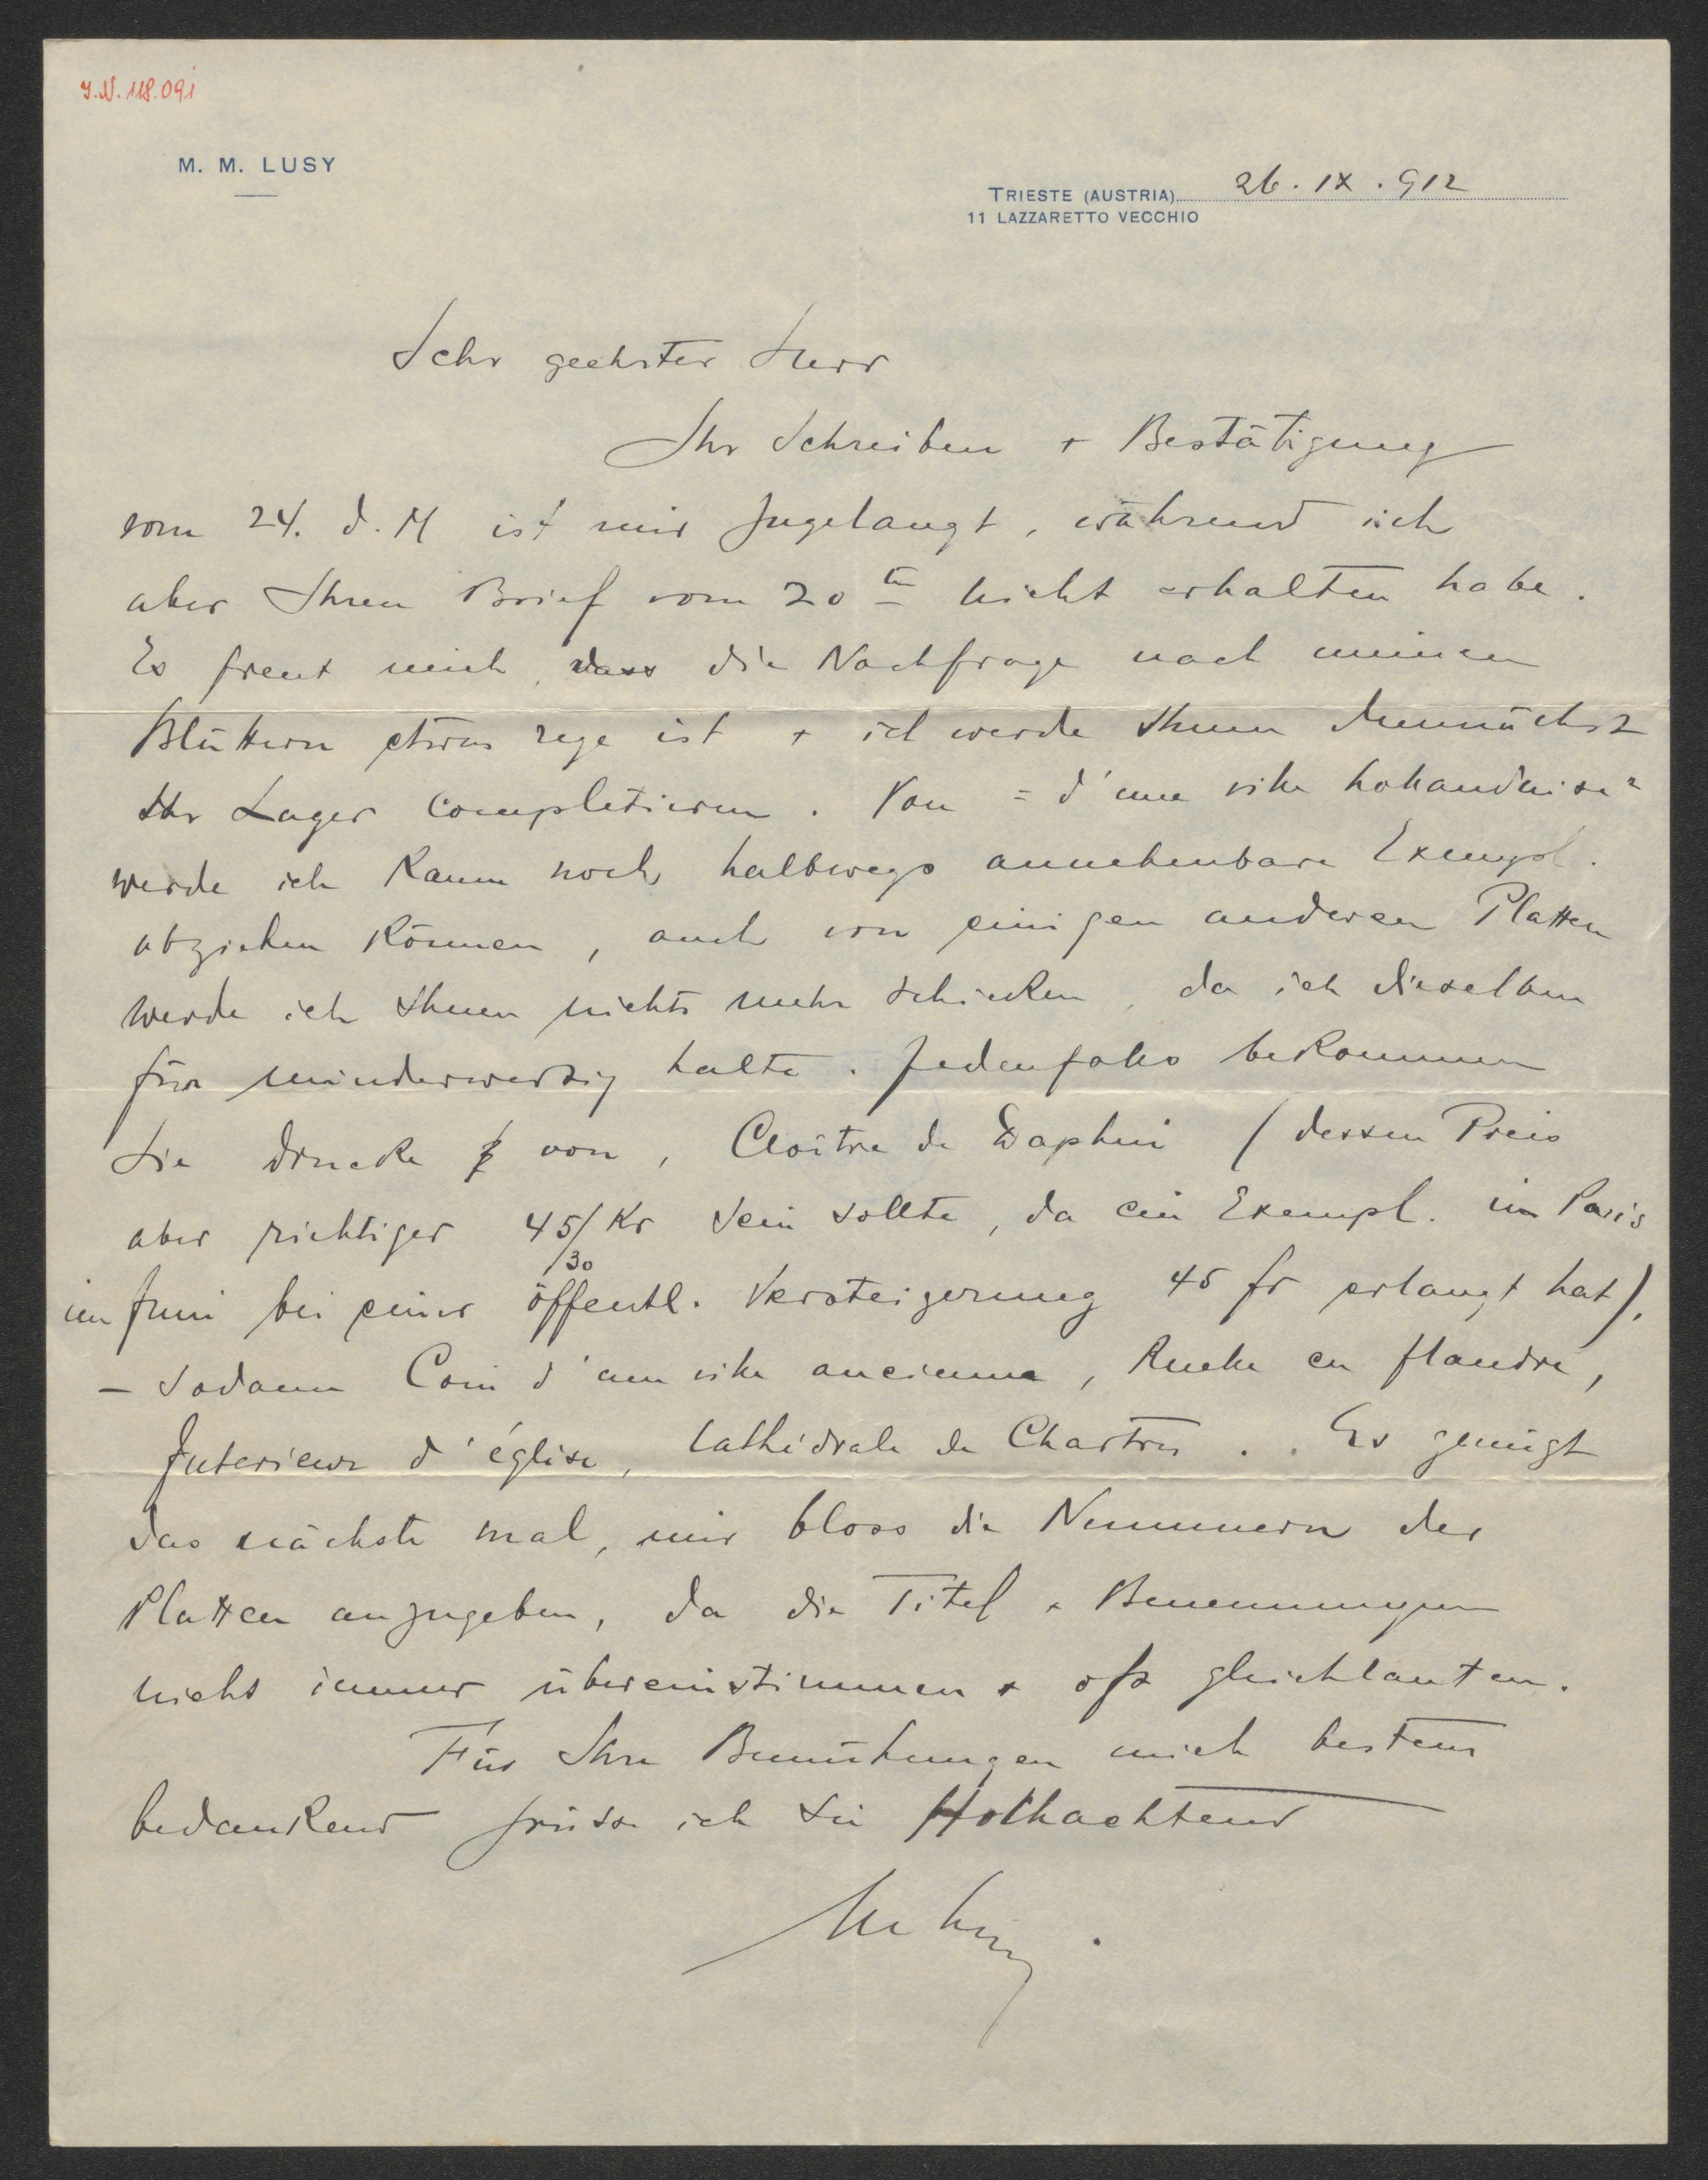 I.N. 118.091
M. M. LUSY
TRIESTE (AUSTRIA) 26. IX. 912
11 LAZZARETTO VECCHIO
Sehr geehrter Herr
Ihr Schreiben + Bestätigung
vom 24. d. M ist mir zugelangt, während ich
aber Ihren Brief vom 20ten nicht erhalten habe.
Es freut mich, dass die Nachfrage nach meinen
Blättern etwas rege ist + ich werde Ihnen demnächst
Ihr Lager completieren. Von = d'une ville hollandaise"
werde ich kaum noch halbwegs annehmbare Exempl.
abziehen können, auch von einigen anderen Platten
werde ich Ihnen nichts mehr schicken, da ich dieselben
für minderwertig halte. Jedenfalls bekommen
Sie Drucke von, Cloître de Daphni (dessen Preis
aber richtiger 45/30 Kr sein sollte, da ein Exempl. in Paris
im Juni bei einer öffentl. Versteigerung 45 fr erlangt hat).
- Sodann Coin d'une ville ancienne, Ruelle en flandre,
Interieur d'église, Cathédrale de Chartres . . Es genügt
das nächste mal, mir bloss die Nummern der
Platten anzugeben, da die Titel + Benennungen
nicht immer übereinstimmen + oft gleichlauten.
Für Ihre Bemühungen mich bestens
bedankend grüsse ich Sie Hochachtend
M Lusy.